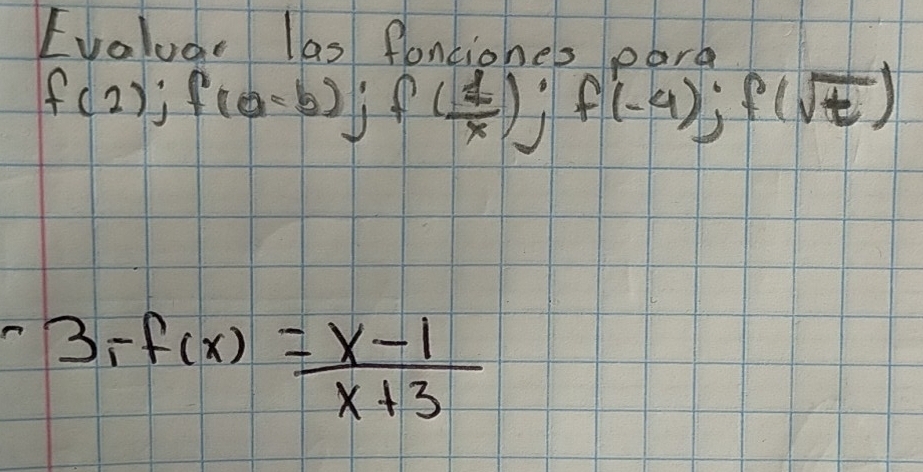 Evaluar las funciones para
f(2); f(a-b); f(1/x); f(-4); f(√t)
3.- f(x) = x-1
x+3